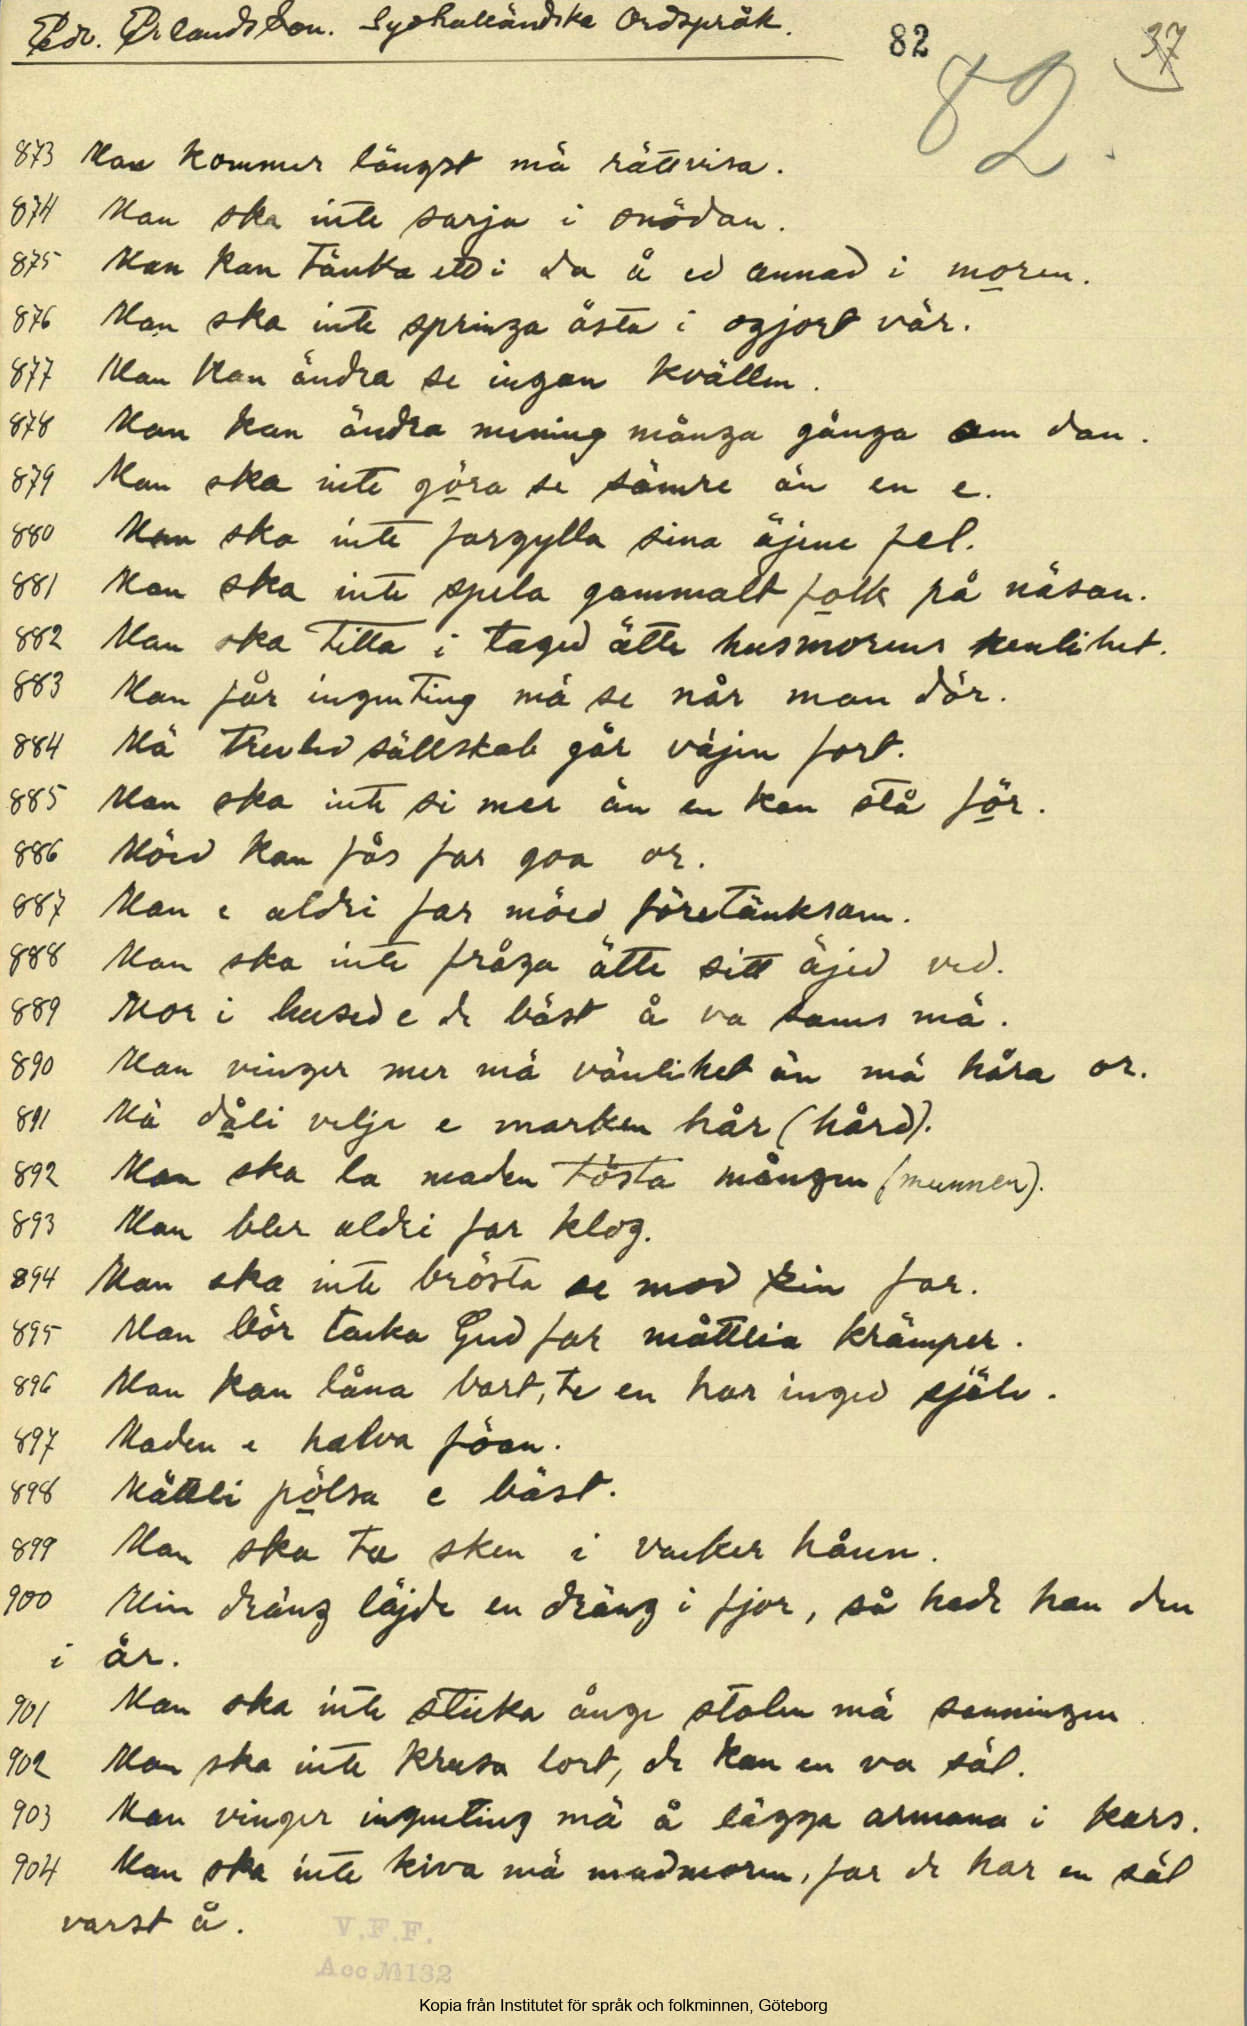 Per. Erlandsson. Sydhalländska Ordspråk.
82
37
82.
873 Man kommer längst mä rättvisa.
874 Man ska inte sarja i onödan.
875 Man kan tänka ett i da å ed annad i moren.
876 Man ska inte springa åsta i ogjort vär.
877 Man kan ändra se ingan kvällen.
878 Man kan ändra mening många gånga om dan.
879 Man ska inte göra se sämre än en e.
880 Man ska inte forgylla sina äjene fel.
881 Man ska inte spela gammalt folk på näsan.
882 Man ska titta i taged ätte husmorens renlihet.
883 Man får ingenting mä se når man dör.
884 Mä trevled sällskab går väjen fort.
885 Man ska inte si mer än en kan stå för.
886 Möed kan fås for goa or.
887 Man e aldri for möed företänksam.
888 Man ska inte fråga ätte sitt äjed ved.
889 Mor i hused e de bäst å va sams mä.
890 Man vinger mer mä vänlihet än mä håra or.
891 Mä dåli velje e marken hår (hård).
892 Man ska la maden tösta mången (munnen).
893 Man bler aldri for klog.
894 Man ska inte brösta se mod sin far.
895 Man bör tacka Gud for måttlia krämper.
896 Man kan låna bort, te en har inged själv.
897 Maden e halva föan.
898 Mättli pölsa e bäst.
899 Man ska ta sken i vacker hånn.
900 Min dräng läjde en dräng i fjor, så hade han den
i år.
901 Man ska inte sticka ånge stolen mä sanningen
902 Man ska inte krusa lort, de kan en va säl.
903 Man vinger ingenting mä å lägga armana i kors.
904 Man ska inte kiva mä madmoren, for de har en säl
varst å.
V.F.F.
Acc M132
Kopia från Institutet för språk och folkminnen, Göteborg